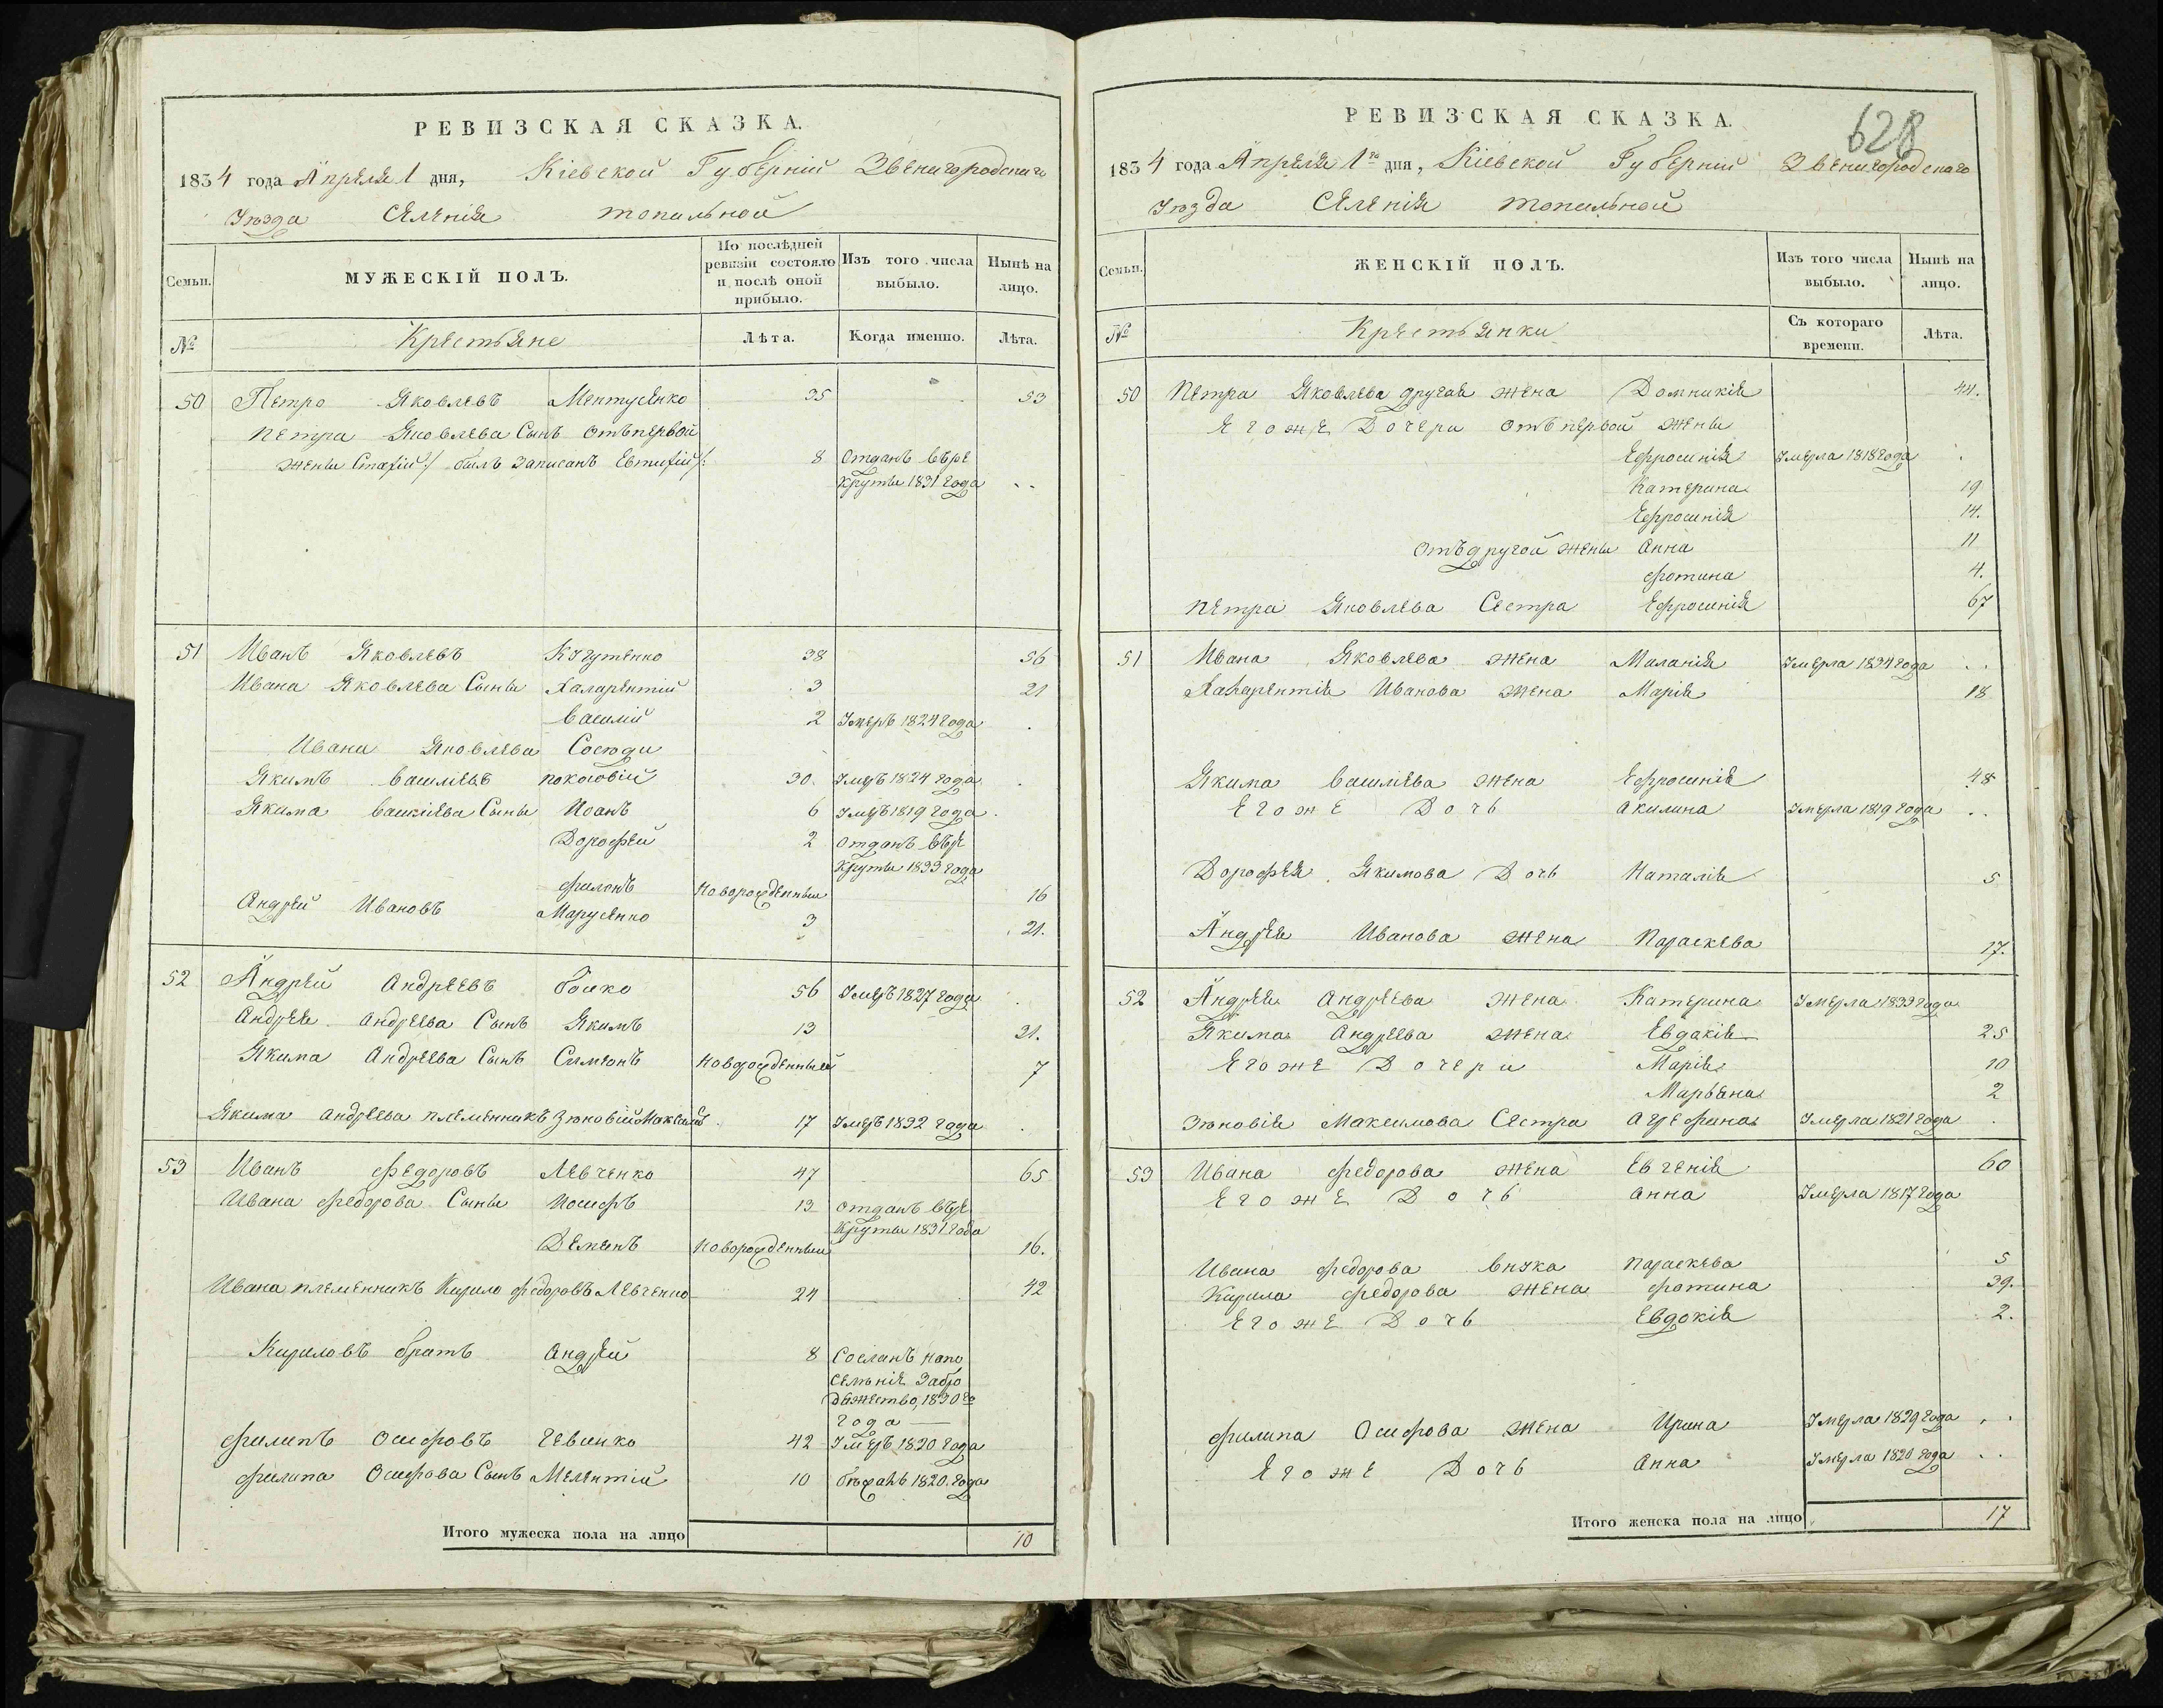 РЕВИЗСКАЯ СКАЗКА.
1834 года Апреля 1 дня, Кіевской Губерніи Звенигородскаго
Уѣзда Селенія топильной
Семьи. МУЖЕСКІЙ ПОЛЪ. По послѣдней ревизіи состояло и послѣ оной прибыло. Изъ того числа выбыло. Нынѣ на лицо.
№ Крестьяне Лѣта. Когда именно. Лѣта.
50 Петро Яковлевъ Ментусенко 35 53
Петра Яковлева Сынъ отъ первой
жены Стахій /: былъ записанъ Евтифій :/ 8 отданъ в ре
круты 1831 года
51 Иванъ Яковлевъ 38 56
Ивана Яковлева Сыны Каларентій 3 21
Василій 2 Умеръ 1824 года
Ивана Яковлева Соседи
Якимъ Василіевъ 30. Умеръ 1824 года
Якима Василіева Сыны Иоанъ 6 Умеръ 1819 года
Дорофей 2 отданъ в ре
круты 1833 года
Филонъ новорожденный 16
Андрей Ивановъ Марусенко 3 21.
52 Андрей Андреевъ бойко 56 Умеръ 1827 года
Андрея Андреева Сынъ Якимъ 13 31.
Якима Андреева Сынъ Симеонъ новорожденный 7
Якима Андреева племенникъ Зѣновій Максимовъ 17 Умеръ 1832 года
53 Иванъ Федоровъ Левченко 47 65
Ивана Федорова Сыны Иосифъ 13 отданъ в ре
круты 1831 года
Демянъ новорожденный 16.
Ивана племенникъ Кирило Федоровъ Левченко 24 42
Кириловъ братъ Андрей 8 Сосланъ на по
селеніе за бро
дяжество, 1830 го
года
Филипъ Осифовъ 42 Умеръ 1820 года
Филипа Осифова Сынъ Мелентій 10 бѣжалъ 1820. года
Итого мужеска пола на лицо 10
628
РЕВИЗСКАЯ СКАЗКА.
1834 года Апреля 1го дня, Кіевской Губерніи Звенигородскаго
Уѣзда Селенія топильной
Семьи. ЖЕНСКІЙ ПОЛЪ. Изъ того числа выбыло. Нынѣ на лицо.
№ Крестьянки Съ котораго времени. Лѣта.
50 Петра Яковлева другая жена Домникія 44.
Егоже Дочери отъ первой жены
Ефросинія Умерла 1818 года
Катерина 19
Ефросинія 14.
отъ другой жены Анна 11
Фотина 4.
Петра Яковлева Сестра Ефросинія 67
51 Ивана Яковлева жена Маланія Умерла 1834 года
Каларентія Иванова жена Марія 18
Якима Василіева жена Ефросинія 48
Егоже Дочь Акилина Умерла 1819 года
Дорофея Якимова Дочь Наталія 5
Андрея Иванова жена Параскева 17.
52 Андрея Андреева жена Катерина Умерла 1833 года
Якима Андреева жена Евдакія 25
Егоже Дочери Марія 10
Марьяна 2
Зѣновія Максимова Сестра Агрефина Умерла 1821 года
53 Ивана Федорова жена Евгенія 60
Егоже Дочь Анна Умерла 1817 года
Ивана Федорова внука Параскева 5
Кирила Федорова жена Фотина 39.
Егоже Дочь Евдокія 2.
Филипа Осифова жена Ирина Умерла 1829 года
Егоже Дочь Анна Умерла 1820 года
Итого женска пола на лицо 17